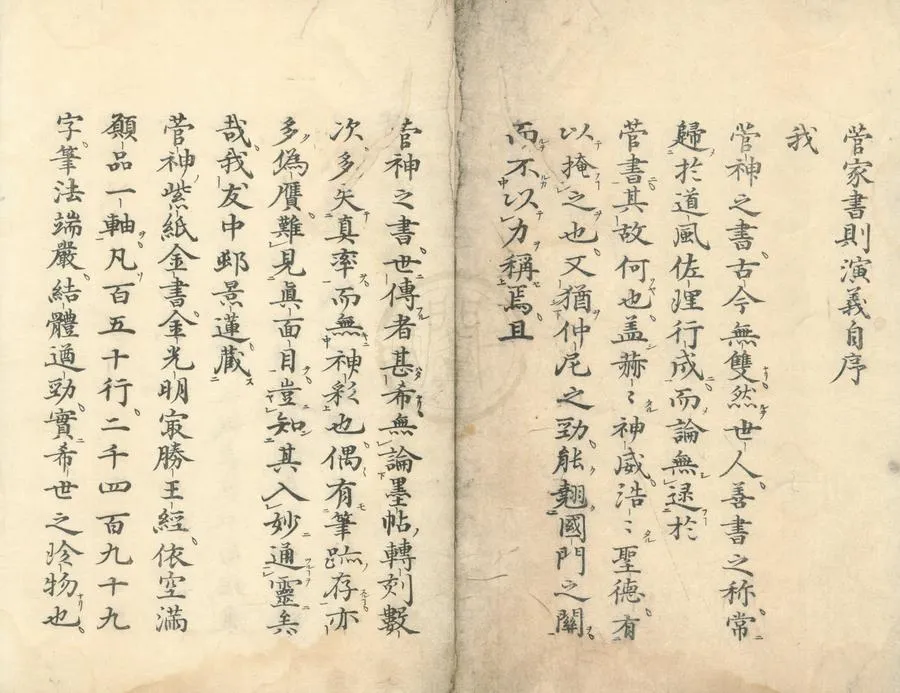 菅家書則演義自序
我
菅神之書古今無雙然世人善書之称常
歸於道風佐理行成而論無逮於
菅書其故何也盖赫〻神威浩〻聖德有
以掩之也又猶仲尼之勁能翹國門之關
而不以力稱焉且
菅神之書世傳者甚希無論墨帖轉刻數
次多失真率而無神彩也偶有筆跡存亦
多偽贋難見眞面目豈知其入妙通靈矣
哉我友中邨景蓮藏
菅神紫紙金書金光明㝡勝王經依空滿
願品一軸凡百五十行二千四百九十九
字筆法端嚴結體遒勁實希世之珍物也